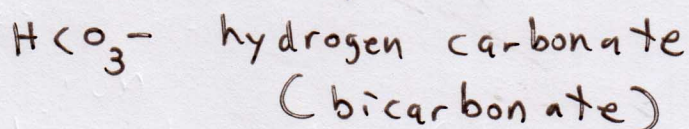 HCO₃⁻ hydrogen carbonate
(bicarbonate)